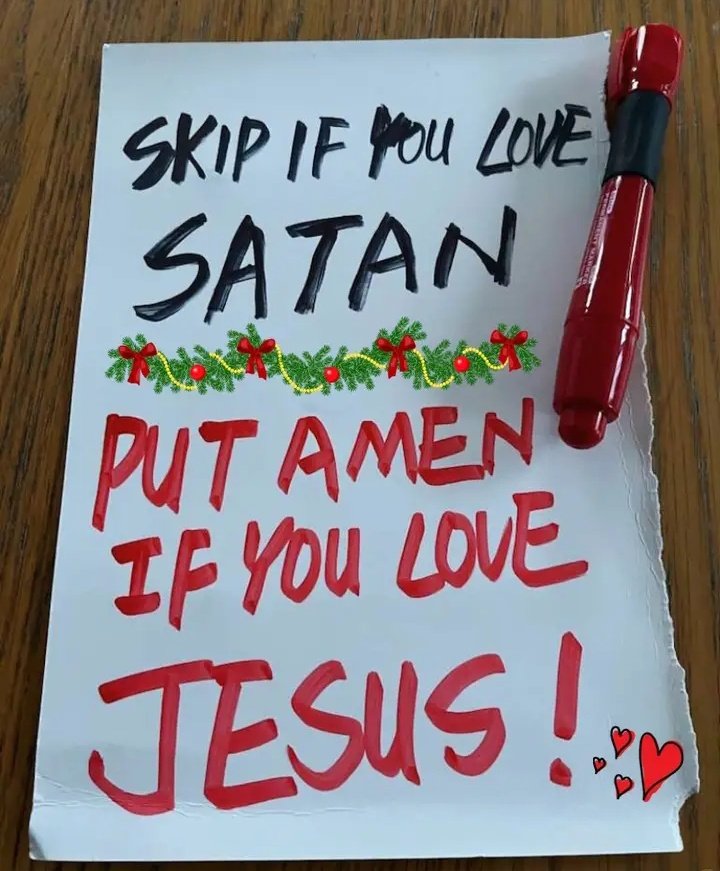 SKIP IF YOU LOVE
SATAN
PUT AMEN
IF YOU LOVE
JESUS!